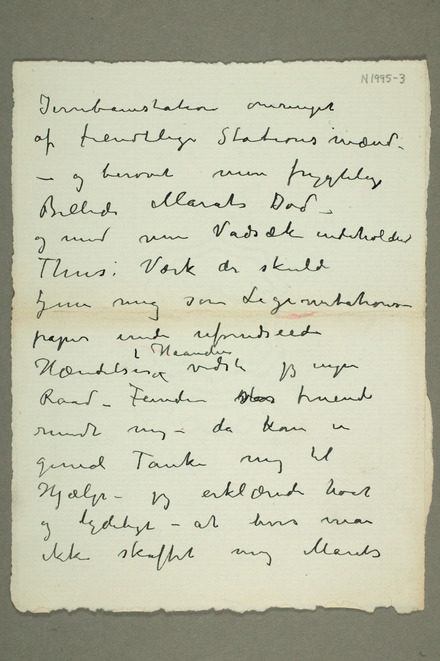 N 1995-3
Jernbanestation omringet
af fiendtlige Stationsmænd –
– og berovet min frygtelige
Billede Marats Død –
og med min Vadsæk indeholdend
Thiis: Værk der skulde
tjene mig som Legimitations
papir under uforudseede
i Haanden
Hændelser x vidste jeg ingen
Raad – Fienden truende
rundt mig – da kom en
genial Tanke mig til
Hjælp – jeg erklærede høit
og tydeligt – at hvis man
ikke skaffet mig Marats